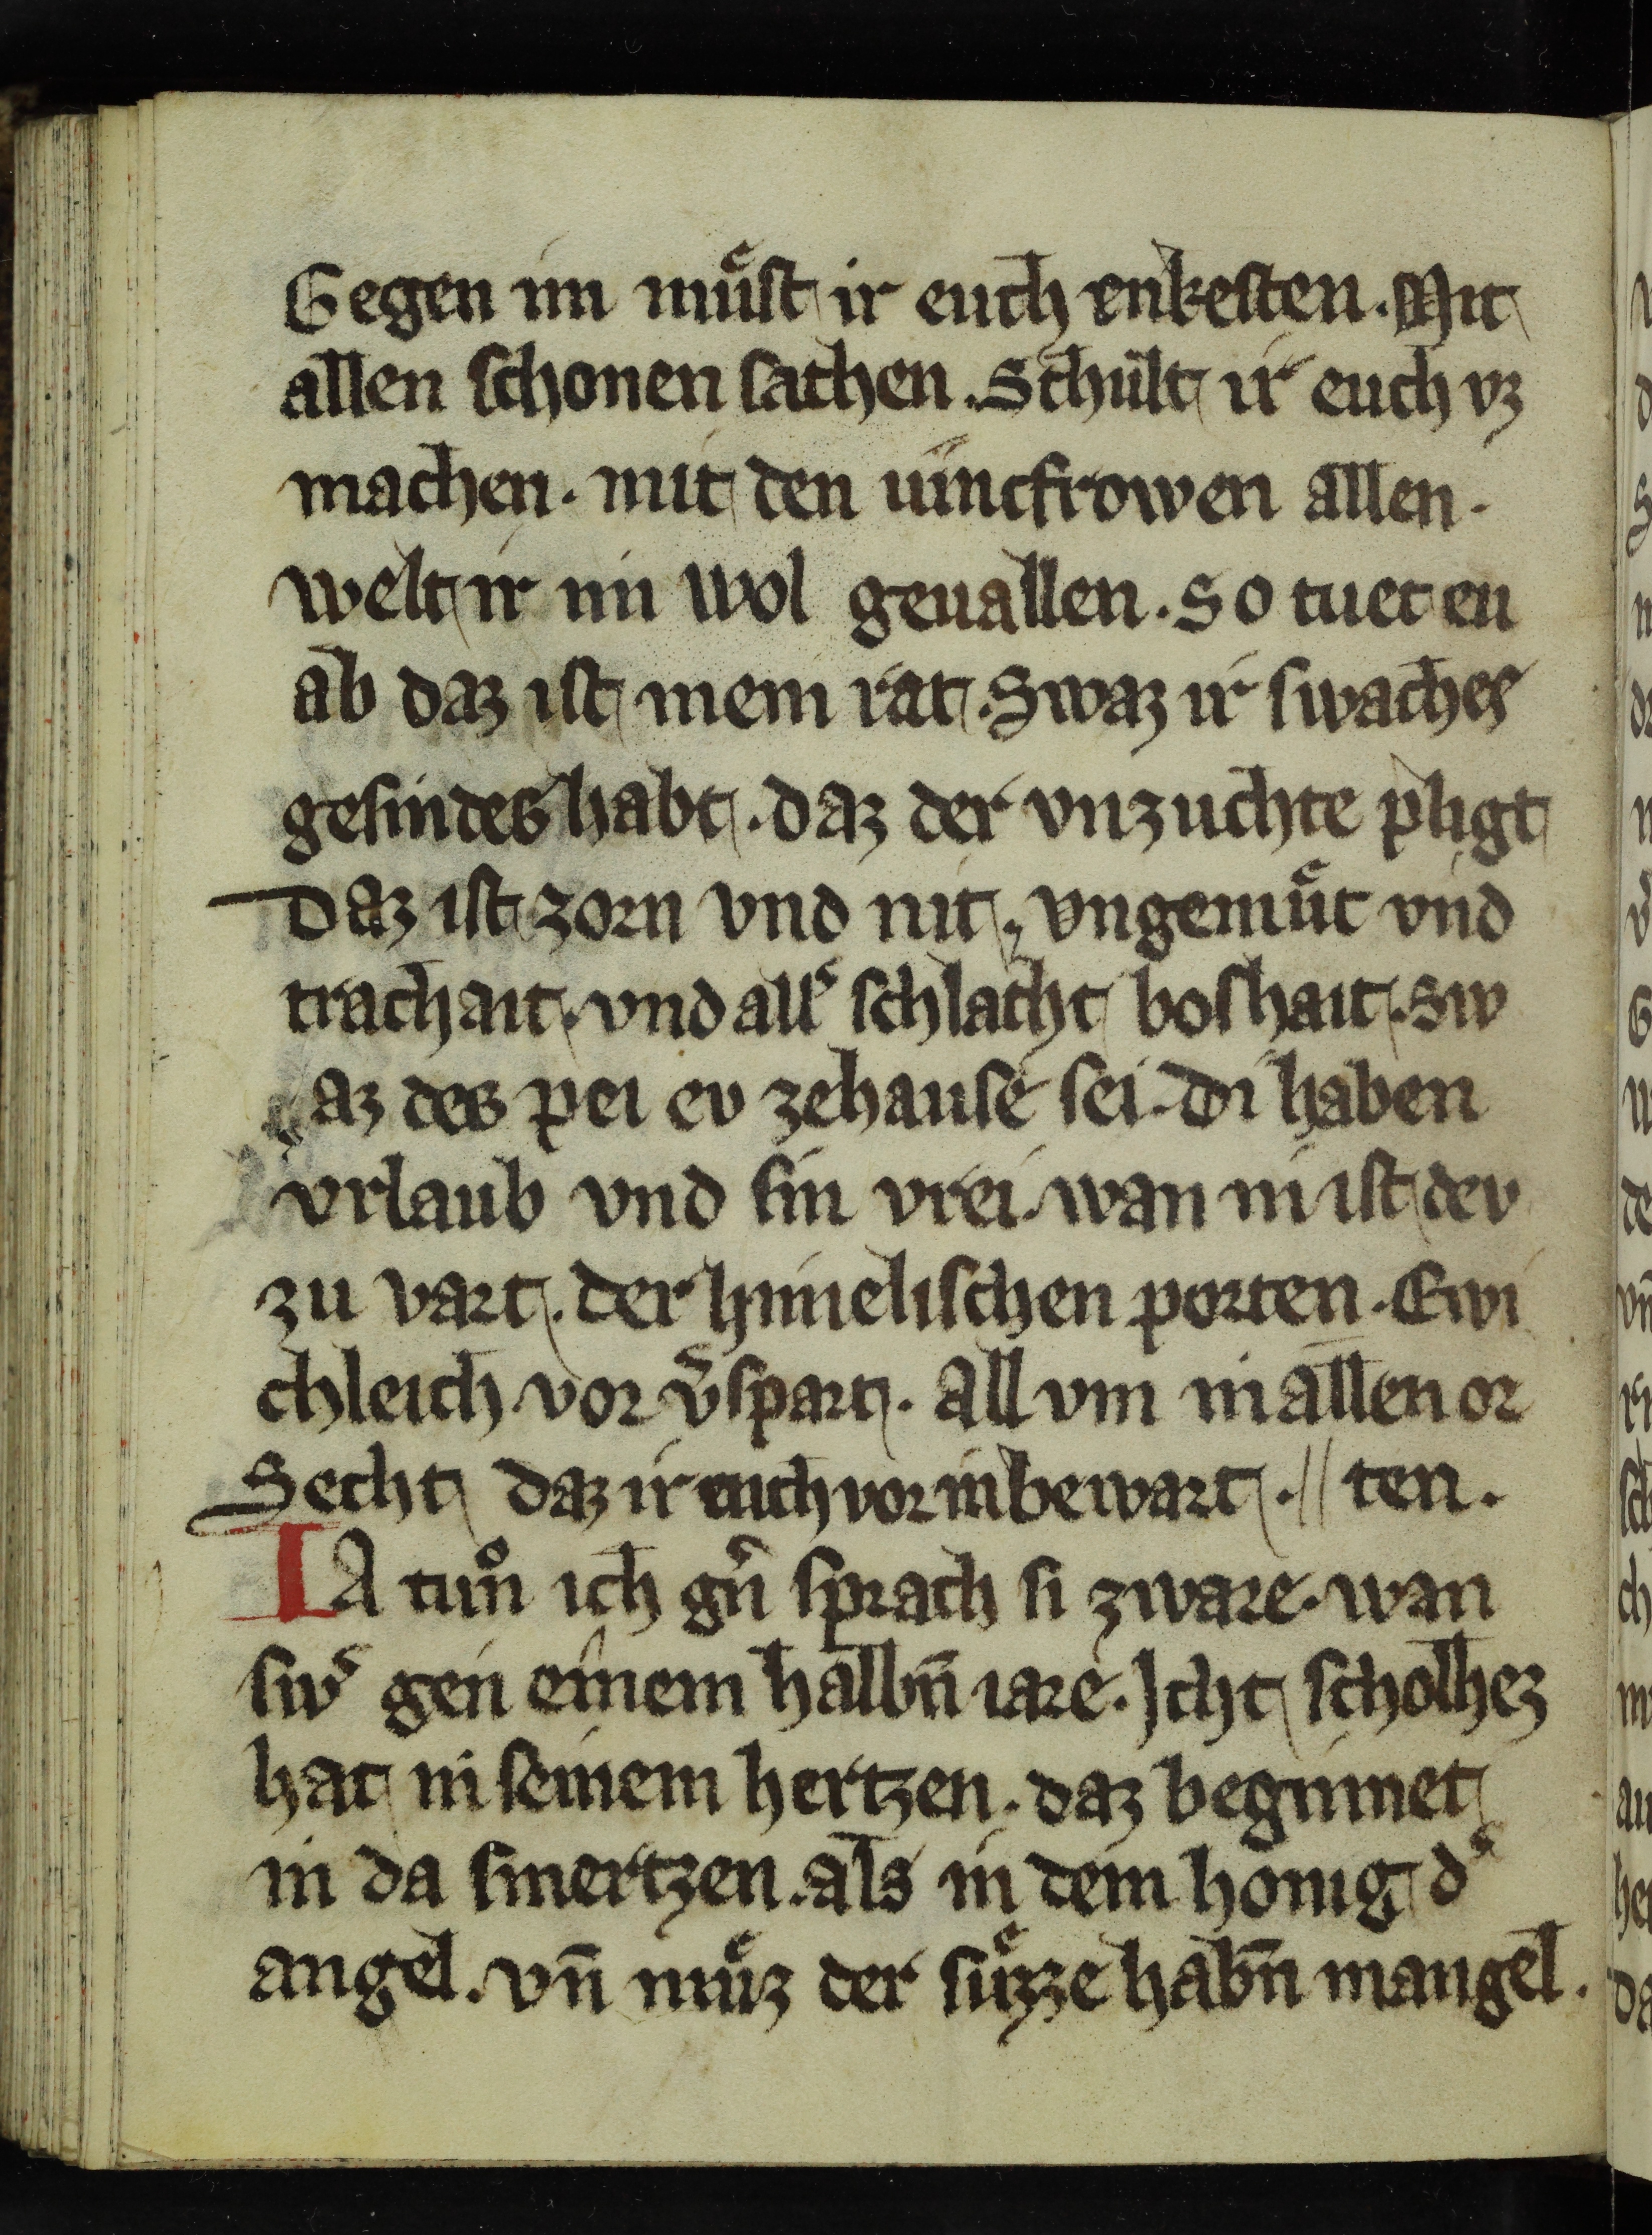 Gegen im muͤst ir euch enkesten. Mit
allen schonen sachen. Schult ir euch vz
machen. mit den iuncfrowen allen.
welt ir im wol geuallen. So tuet eu
ab daz ist mein rat. Swaz ir swaches
gesindes habt. daz der vnzuchte pligt
Daz ist zorn vnd nit. vngemuͤt vnd
trachait. vnd allˢ schlacht boshait. Sw
az des pei ev zehause sei. Di haben
vrlaub vnd sin vrei. wan in ist dev
zu vart. der himelischen porten. Ewi
chleich vor v̓spart. All vm in allen or
Secht daz ir euch vor in bewart. // ten.
IA tuͦn ich gn̄ sprach si zware. wan
swˢ gen einem halbn̄ iare. Icht scholhez
hat in seinem hertzen. daz beginnet
in da smertzen. als in dem honig dˢ
angel. vn̄ muͤz der suͤzze habn̄ mangel.